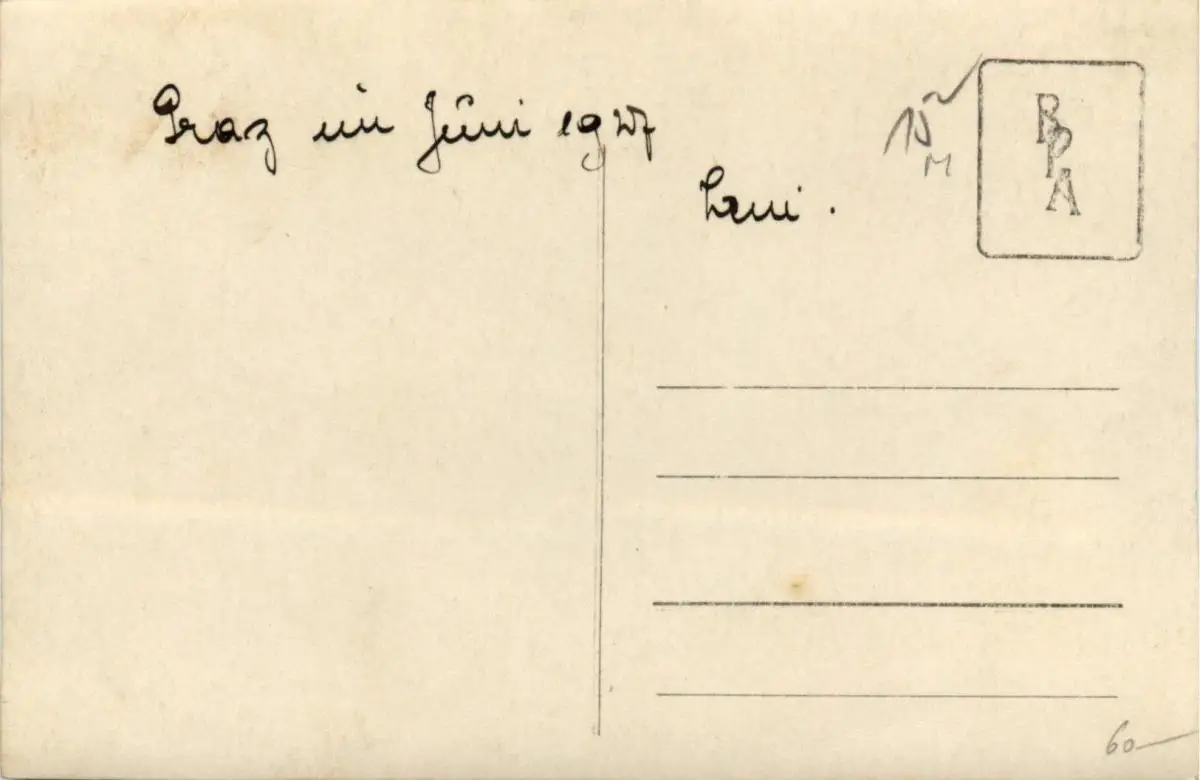 Graz im Juni 1927
15
M
B
P
A
60